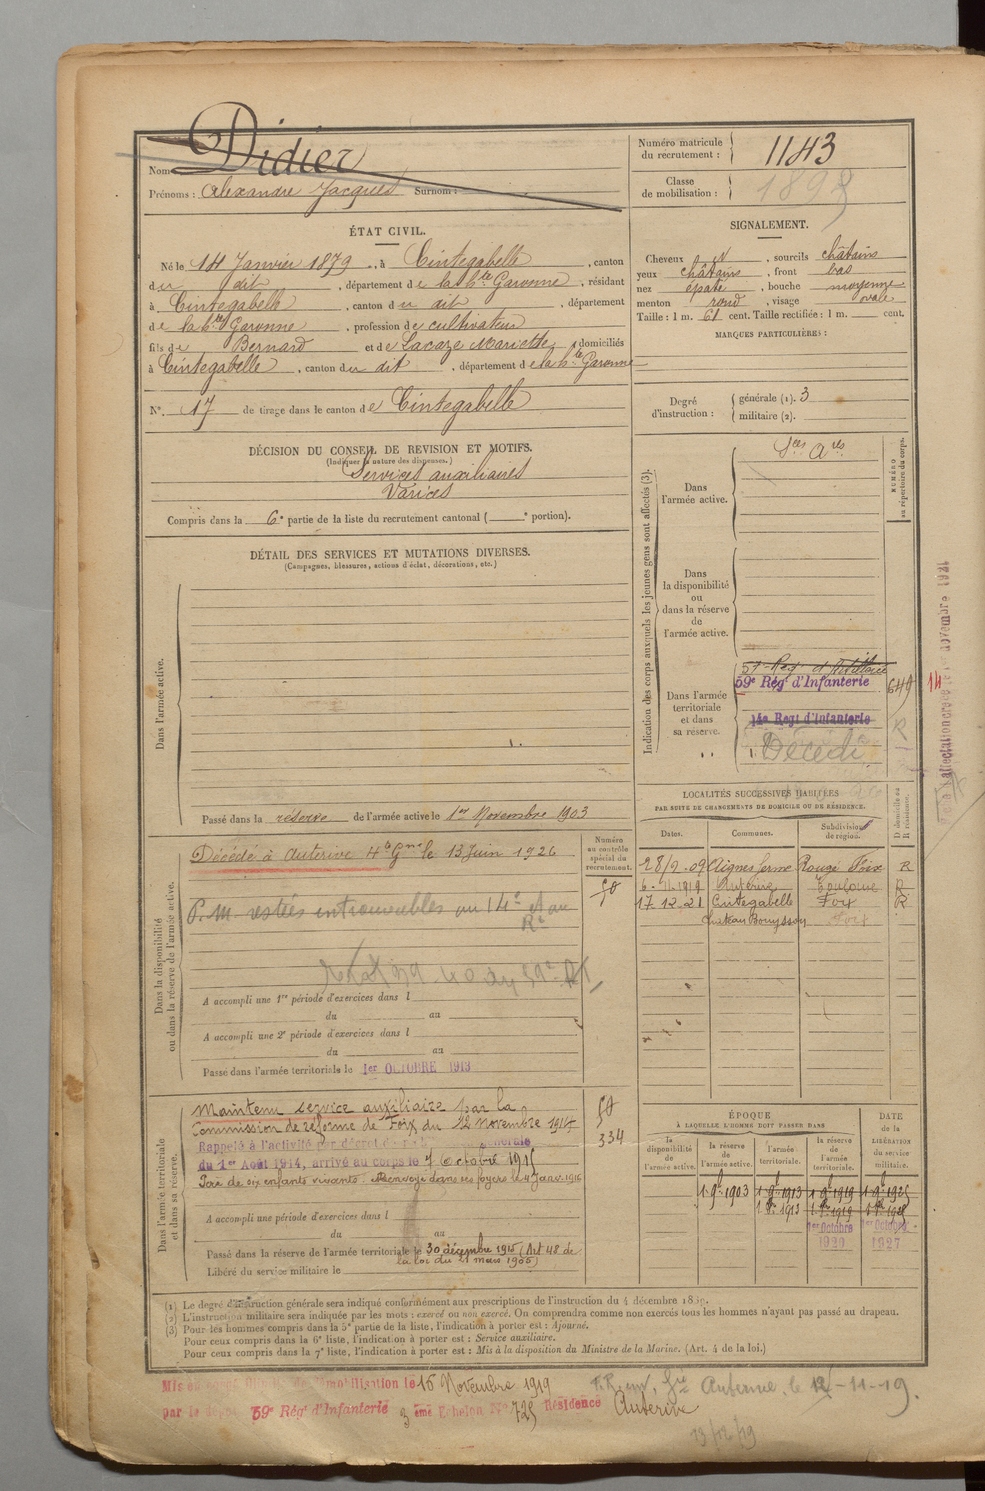 Nom Didier
Prénoms : Alexandre Jacques Surnom :
Numéro matricule du recrutement : 1143
Classe de mobilisation : 1898
ÉTAT CIVIL.
Né le 14 Janvier 1879, à Cintegabelle, canton
du dit, département de la Hte Garonne, résidant
à Cintegabelle, canton du dit, département
de la hte Garonne, profession de cultivateur
fils de Bernard et de Lacaze Mariette, domiciliés
à Cintegabelle, canton du dit, département de la hte Garonne
N° 17 de tirage dans le canton de Cintegabelle
SIGNALEMENT.
Cheveux d, sourcils châtains
yeux châtains, front bas
nez épaté, bouche moyenne
menton rond, visage ovale
Taille : 1 m. 61 cent. Taille rectifiée : 1 m. cent.
MARQUES PARTICULIÈRES :
Degré d'instruction :
générale (1). 3
militaire (2).
DÉCISION DU CONSEIL DE REVISION ET MOTIFS.
(Indiquer la nature des dispenses.)
Services auxiliaires
Varices
Compris dans la 6e partie de la liste du recrutement cantonal ( e portion).
DÉTAIL DES SERVICES ET MUTATIONS DIVERSES.
(Campagnes, blessures, actions d'éclat, décorations, etc.)
Dans l'armée active.
Passé dans la réserve de l'armée active le 1er Novembre 1903
Indication des corps auxquels les jeunes gens sont affectés (3).
NUMÉRO au répertoire du corps.
Dans l'armée active.
Sces Ares
Dans la disponibilité ou dans la réserve de l'armée active.
Dans l'armée territoriale et dans sa réserve.
57 Regt d'Artillerie
59e Régt d'Infanterie
649
14e Regt d'Infanterie
Décédé
R
14
affectation novembre 1921
LOCALITÉS SUCCESSIVES HABITÉES
PAR SUITE DE CHANGEMENTS DE DOMICILE OU DE RÉSIDENCE.
D domicile ou R résidence.
Dates. Communes. Subdivisions de région.
28/2.09 Aignes ferme Rougé Foix R
6-11-1919 Auterive Toulouse R
17.12.21 Cintegabelle Foix R
château Bouyssou Foix
Dans la disponibilité ou dans la réserve de l'armée active.
Numéro au contrôle spécial du recrutement.
Décédé à Auterive Hte Gne le 13 Juin 1926
P.M. restées introuvables au 14e et au
A accompli une 1re période d'exercices dans l
du au
A accompli une 2e période d'exercices dans l
du au
Passé dans l'armée territoriale le 1er OCTOBRE 1913
Dans l'armée territoriale et dans sa réserve.
Maintenu service auxiliaire par la
Commission de réforme de Foix du 12 Novembre 1914
334
Rappelé à l'activité par décret de mobilisation générale
du 1er Août 1914, arrivé au corps le 7 Octobre 1915
Père de six enfants vivants. Renvoyé dans ses foyers le 4 Janv. 1916
A accompli une période d'exercices dans l
du au
Passé dans la réserve de l'armée territoriale le 30 décembre 1915 (Art 48 de
la loi du 21 mars 1905)
Libéré du service militaire le
ÉPOQUE
À LAQUELLE L'HOMME DOIT PASSER DANS
DATE de la LIBÉRATION du service militaire.
la disponibilité de l'armée active.
la réserve de l'armée active.
l'armée territoriale.
la réserve de l'armée territoriale.
1.9bre 1903 1.9bre 1913 1.9bre 1919 1.9bre 1925
1er Octobre 1920
1er Octobre 1927
(1) Le degré d'instruction générale sera indiqué conformément aux prescriptions de l'instruction du 4 décembre 1889.
(2) L'instruction militaire sera indiquée par les mots : exercé ou non exercé. On comprendra comme non exercés tous les hommes n'ayant pas passé au drapeau.
(3) Pour les hommes compris dans la 5e partie de la liste, l'indication à porter est : Ajourné.
Pour ceux compris dans la 6e liste, l'indication à porter est : Service auxiliaire.
Pour ceux compris dans la 7e liste, l'indication à porter est : Mis à la disposition du Ministre de la Marine. (Art. 4 de la loi.)
Mis en congé illimité de démobilisation le 16 Novembre 1919
par le dépôt 59e Régt d'Infanterie 3 eme Echelon N° 725 Résidence Auterive
Auterive, le 12-11-19.
13/12/19